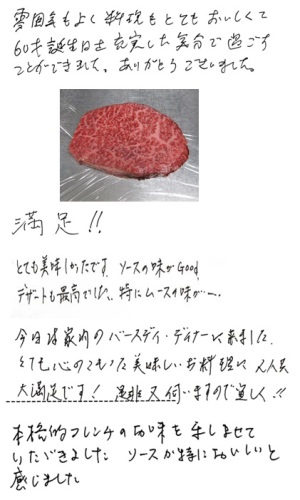 雰囲気もよく料理もとてもおいしくて
60才誕生日を充実した気分で過ごす
ことができました。ありがとうございました。
満足!!
とても美味しかったです。ソースの味がGood
デザートも最高でした。特にムースの味が…。
今日は家内のバースデイ・ディナーに来ました。
とても心のこもった美味しいお料理に 2人共
大満足です! 是非又伺いますので宜しく!!
本格的フレンチのお味を楽しませて
いただきました ソースが特においしいと
感じました